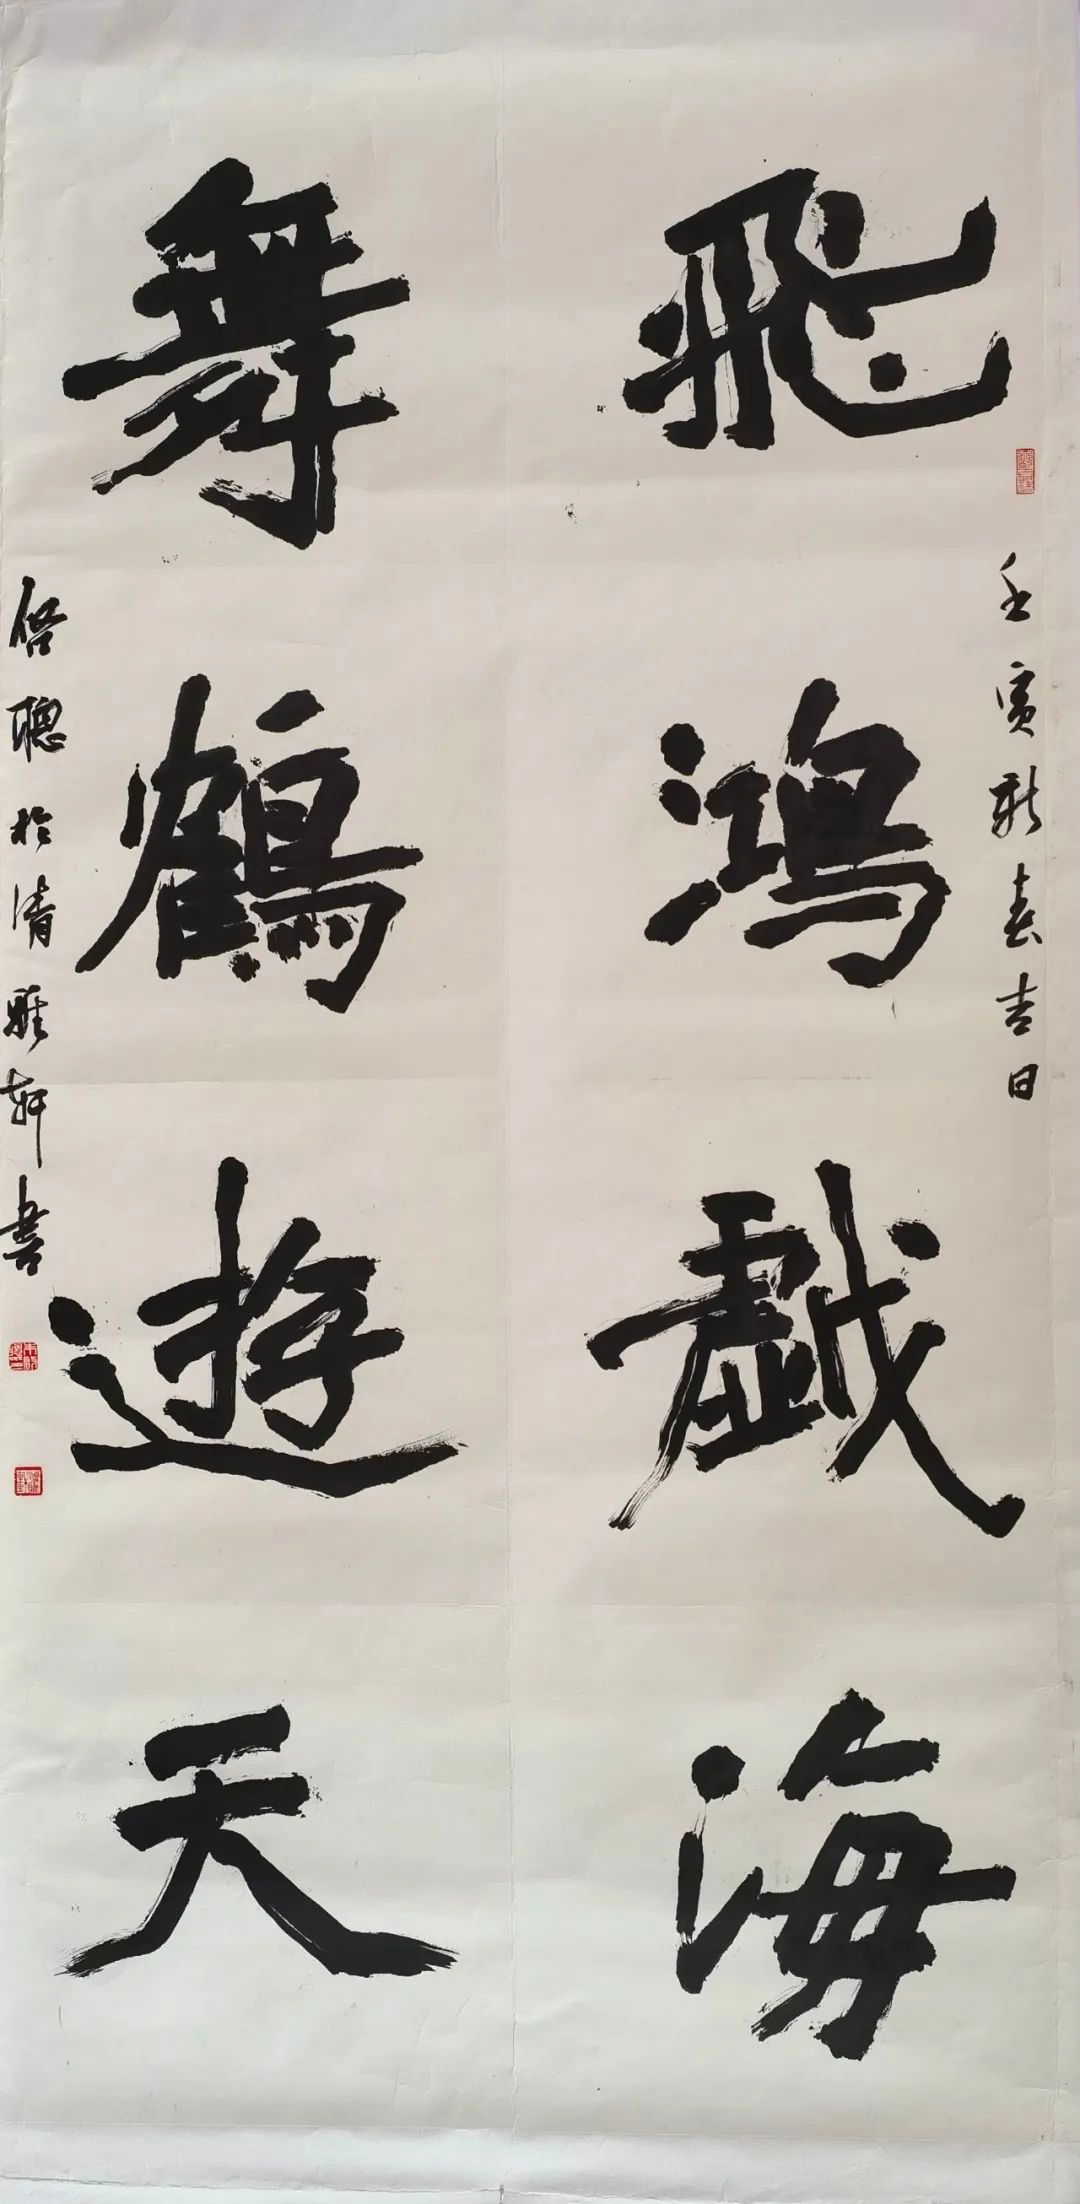 飛鴻戯海
舞鶴遊天
壬寅新春吉日
啓聰於清雅軒書